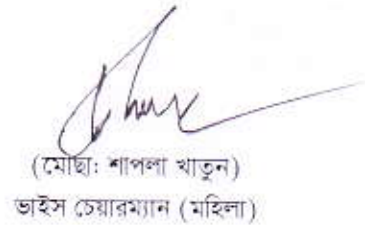 (মোছা: শাপলা খাতুন)
ভাইস চেয়ারম্যান (মহিলা)